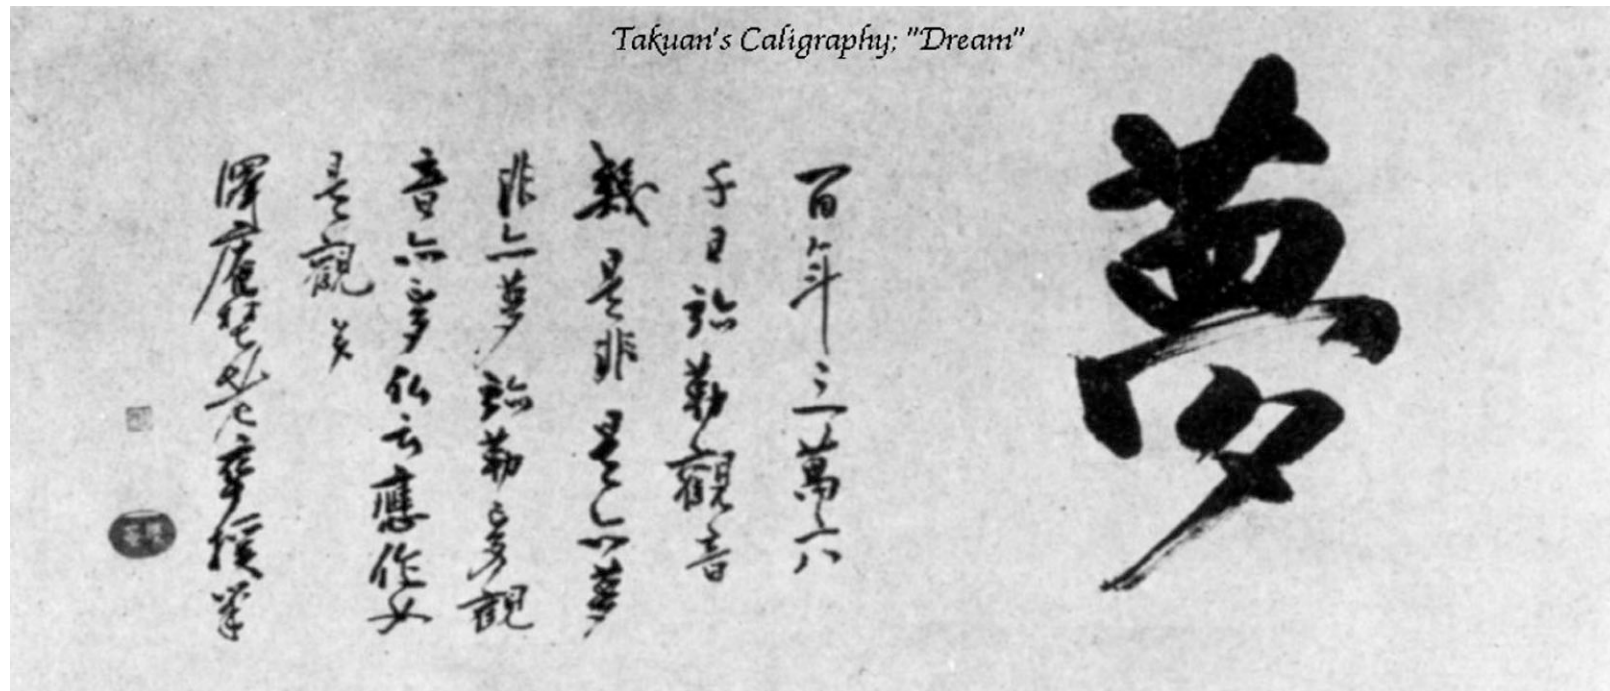 Takuan's Caligraphy; "Dream"
夢
百年三萬六
千日弥勒觀音
幾是非是亦夢
非亦夢弥勒亦夢觀
音亦夢仏云應作如
是觀矣
澤庵老卒援筆